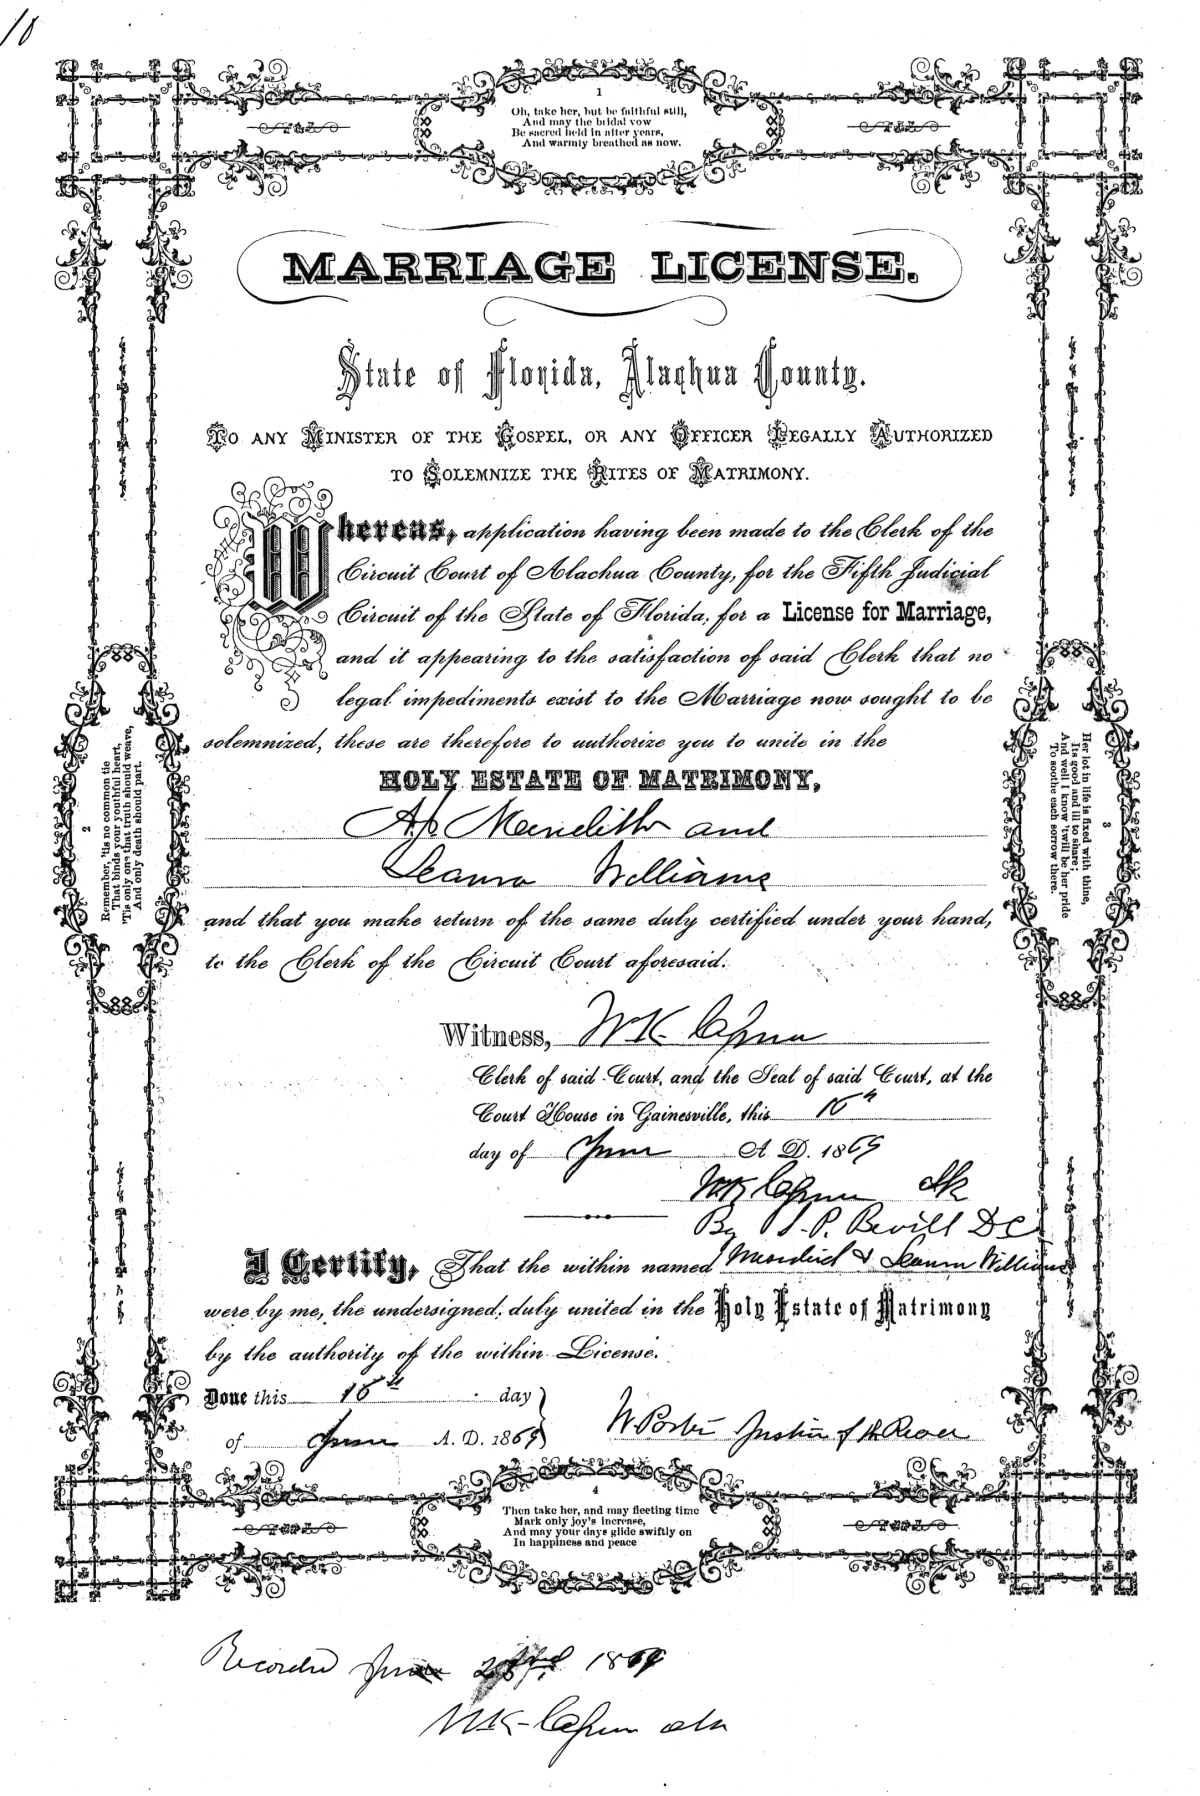 10
1
Oh, take her, but be faithful still,
And may the bridal vow
Be sacred held in after years,
And warmly breathed as now.
MARRIAGE LICENSE.
State of Florida, Alachua County.
TO ANY MINISTER OF THE GOSPEL, OR ANY OFFICER LEGALLY AUTHORIZED
TO SOLEMNIZE THE RITES OF MATRIMONY.
Whereas, application having been made to the Clerk of the
Circuit Court of Alachua County, for the Fifth Judicial
Circuit of the State of Florida, for a License for Marriage,
and it appearing to the satisfaction of said Clerk that no
legal impediments exist to the Marriage now sought to be
solemnized, these are therefore to authorize you to unite in the
HOLY ESTATE OF MATRIMONY,
Meredith and
Williams
and that you make return of the same duly certified under your hand,
to the Clerk of the Circuit Court aforesaid.
Witness, W K Cessna
Clerk of said Court, and the Seal of said Court, at the
Court House in Gainesville, this
day of June A. D. 1869
W K Cessna Clk
By P. Bevill D C
I Certify, That the within named & Williams
were by me, the undersigned, duly united in the Holy Estate of Matrimony
by the authority of the within License.
Done this day
of June A. D. 1869
W Porter Justice of the Peace
2
Remember, 'tis no common tie
That binds your youthful heart,
'Tis only one that truth should weave,
And only death should part.
3
Her lot in life is fixed with thine,
Its good and ill to share;
And well I know 'twill be her pride
To soothe each sorrow there.
4
Then take her, and may fleeting time
Mark only joy's increase,
And may your days glide swiftly on
In happiness and peace
Recorded June 1869
W K Cessna Clk